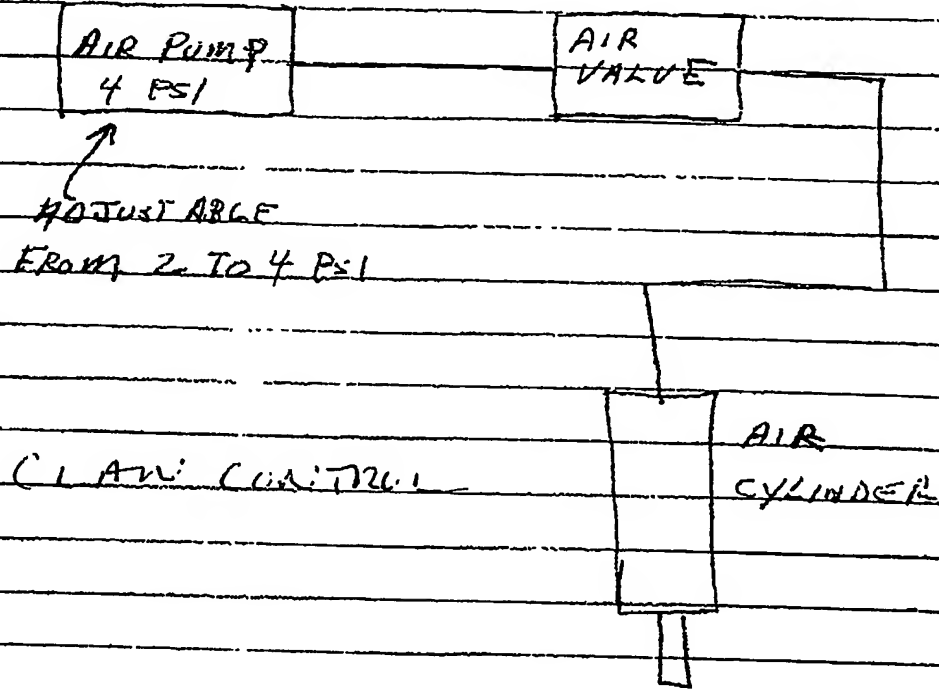 AIR PUMP
4 PSI
AIR
VALVE
ADJUSTABLE
FROM 2 TO 4 PSI
CLAW CONTROL
AIR
CYLINDER